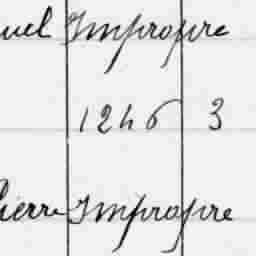 uel Impropre
1246 3
Pierre Impropre